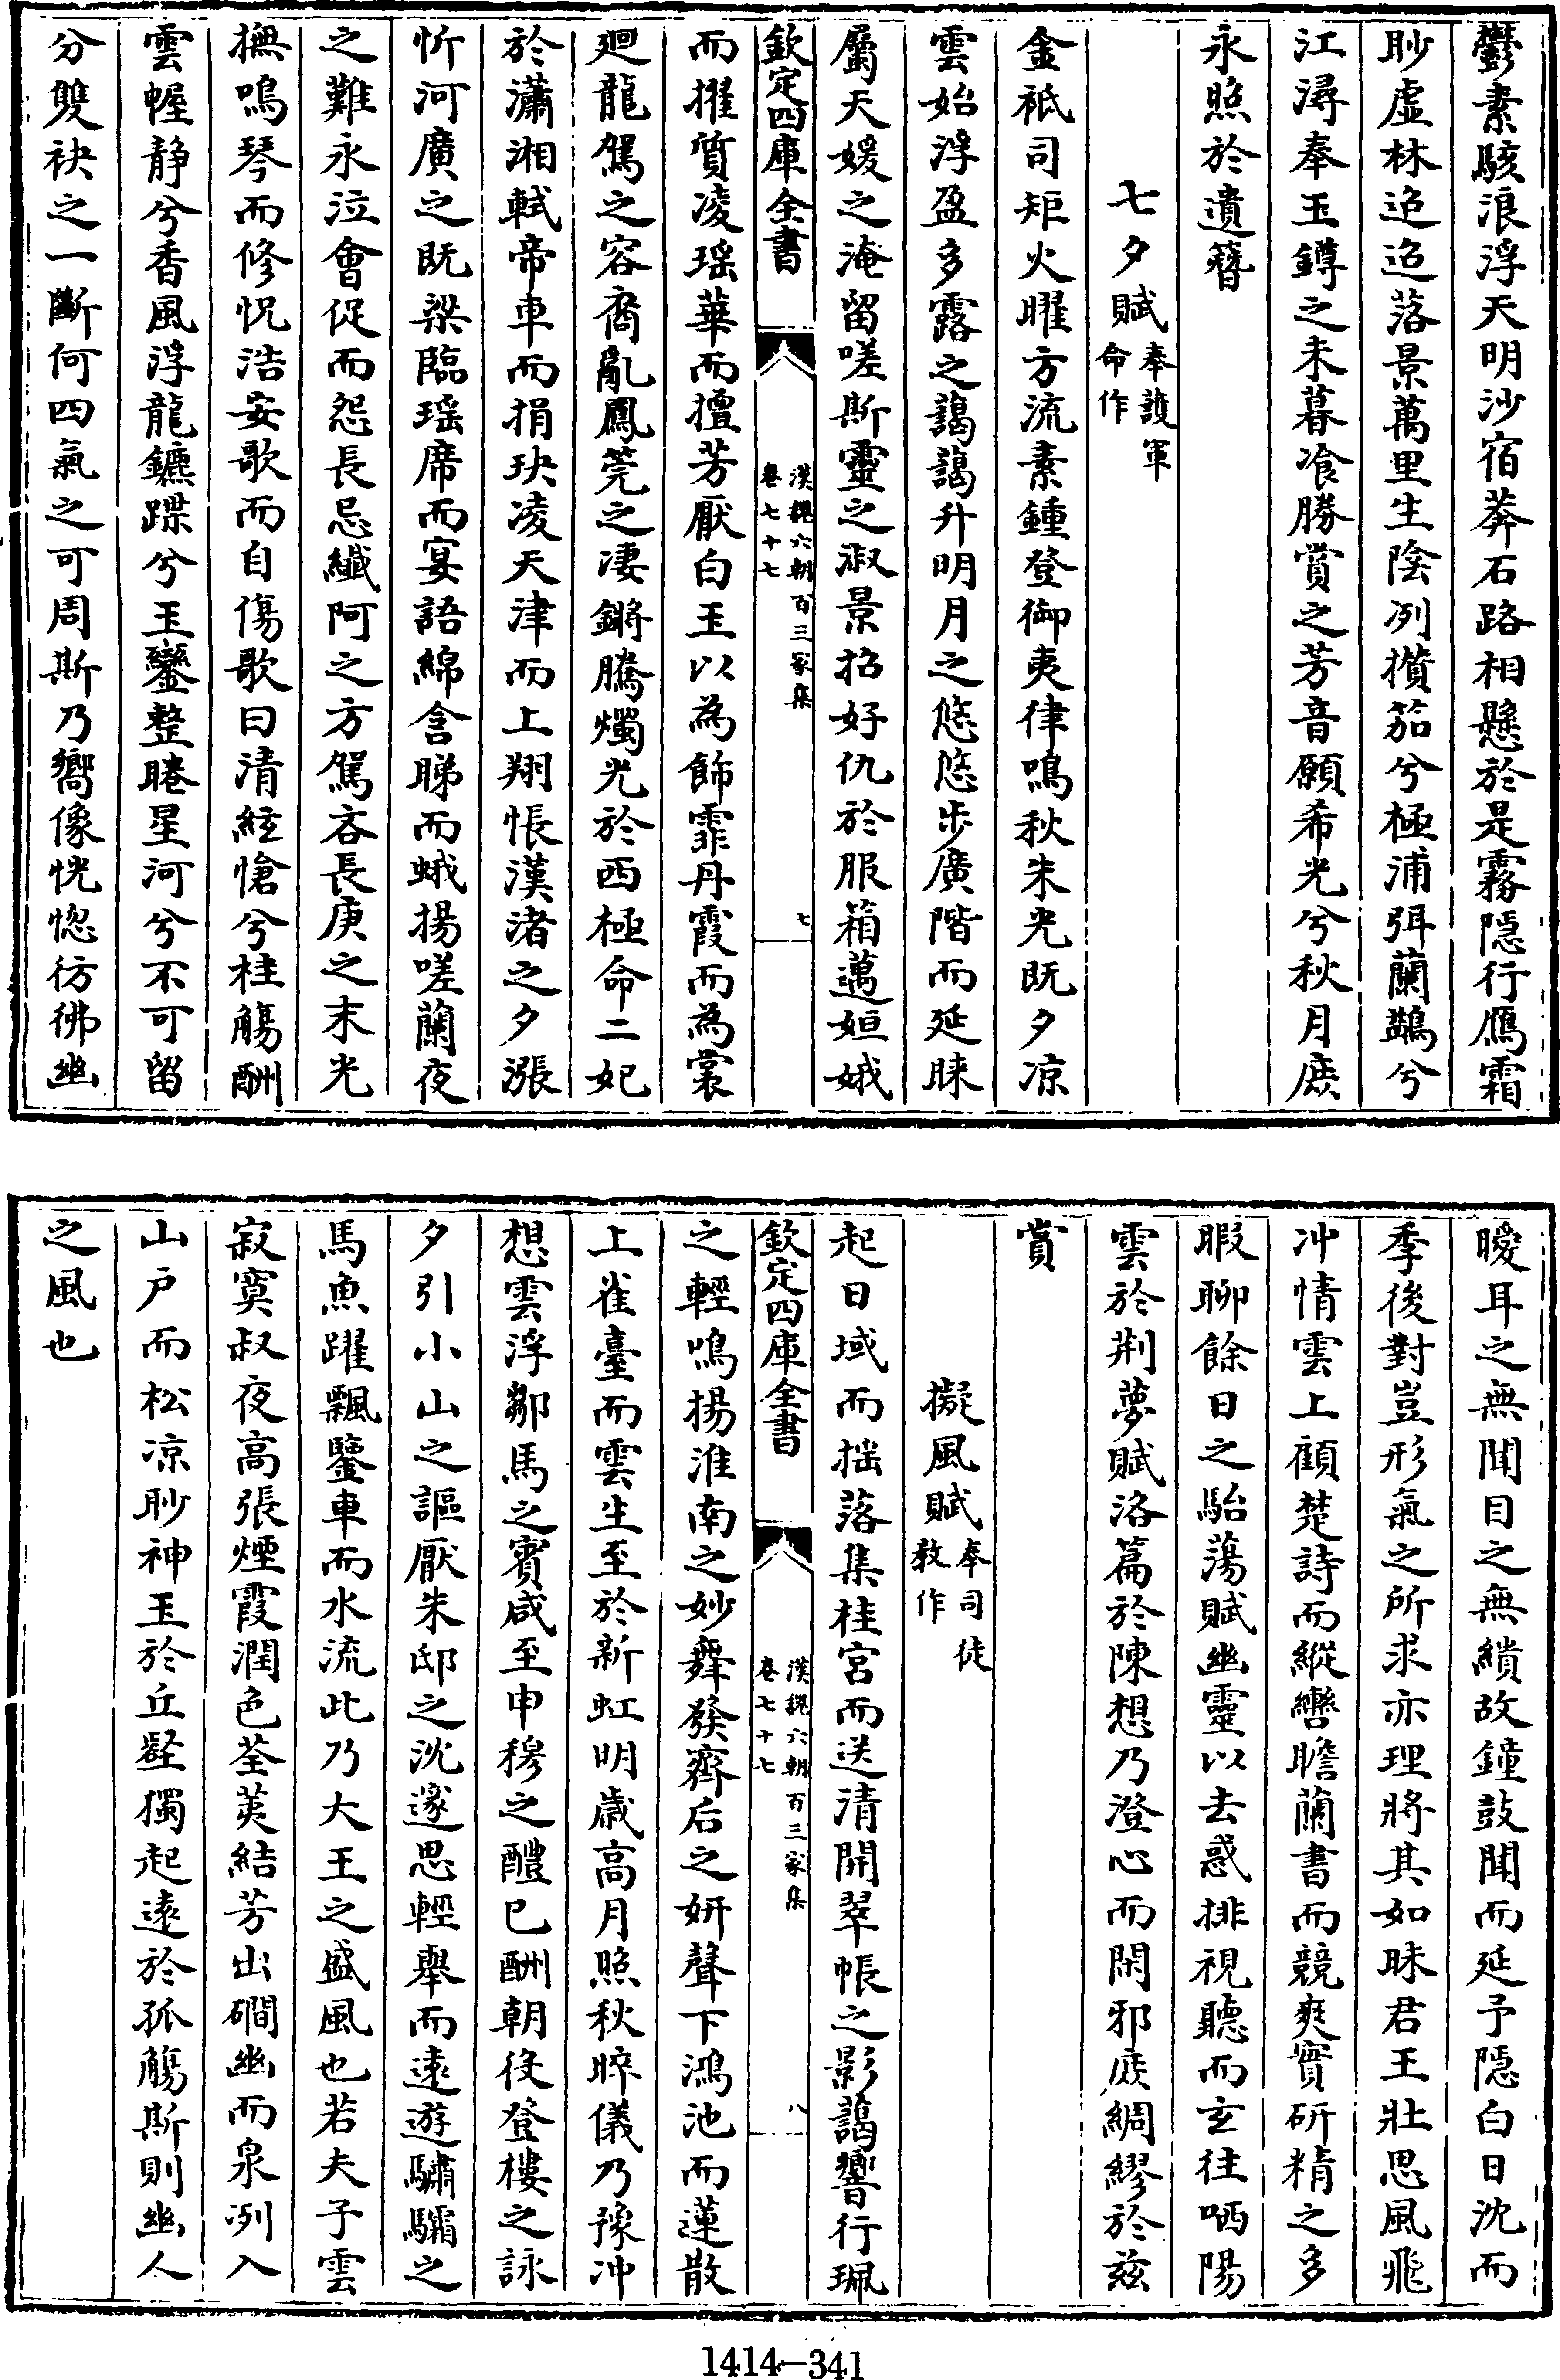 鬱素駭浪浮天明沙宿莽石路相懸於是霧隱行鴈霜
眇虛林迢迢落景萬里生陰冽攢笳兮極浦弭蘭鷁兮
江潯奉玉罇之未暮飡勝賞之芳音願希光兮秋月庶
永照於遺簪
七夕賦奉護軍命作
金祇司矩火曜方流素鍾登御夷律鳴秋朱光既夕凉
雲始浮盈多露之藹藹升明月之悠悠步廣階而延睞
屬天媛之淹留嗟斯靈之淑景招好仇於服箱邁姮娥
欽定四庫全書
漢魏六朝百三家集
卷七十七
七
而擢質凌瑶華而擅芳厭白玉以為飾霏丹霞而為裳
廻龍駕之容裔亂鳳筦之凄鏘騰燭光於西極命二妃
於瀟湘軾帝車而捐玦凌天津而上翔悵漢渚之夕漲
忻河廣之既梁臨瑶席而宴語綿含睇而蛾揚嗟蘭夜
之難永泣會促而怨長忌纖阿之方駕吝長庚之末光
撫鳴琴而修怳浩安歌而自傷歌曰清絃愴兮桂觴酬
雲幄静兮香風浮龍鑣蹀兮玉鑾整睠星河兮不可留
分雙袂之一斷何四氣之可周斯乃嚮像恍惚彷彿幽
曖耳之無聞目之無纘故鐘鼓聞而延予隱白日沈而
季後對豈形氣之所求亦理將其如昧君王壯思風飛
冲情雲上顧楚詩而縱轡瞻蘭書而競爽實研精之多
暇聊餘日之駘蕩賦幽靈以去惑排視聽而玄往哂陽
雲於荆夢賦洛篇於陳想乃澄心而閑邪庶綢繆於兹
賞
擬風賦奉司徒教作
起日域而揺落集桂宮而送清開翠帳之影藹響行珮
欽定四庫全書
漢魏六朝百三家集
卷七十七
八
之輕鳴揚淮南之妙舞發齊后之妍聲下鴻池而蓮散
上雀臺而雲生至於新虹明歲高月照秋睟儀乃豫冲
想雲浮鄒馬之賓咸至申穆之醴已酬朝役登樓之詠
夕引小山之謳厭朱邸之沈邃思輕舉而遠遊驌驦之
馬魚躍飄鑒車而水流此乃大王之盛風也若夫子雲
寂寞叔夜高張煙霞潤色荃荑結芳出磵幽而泉冽入
山户而松凉眇神王於丘壑獨起遠於孤觴斯則幽人
之風也
1414-341